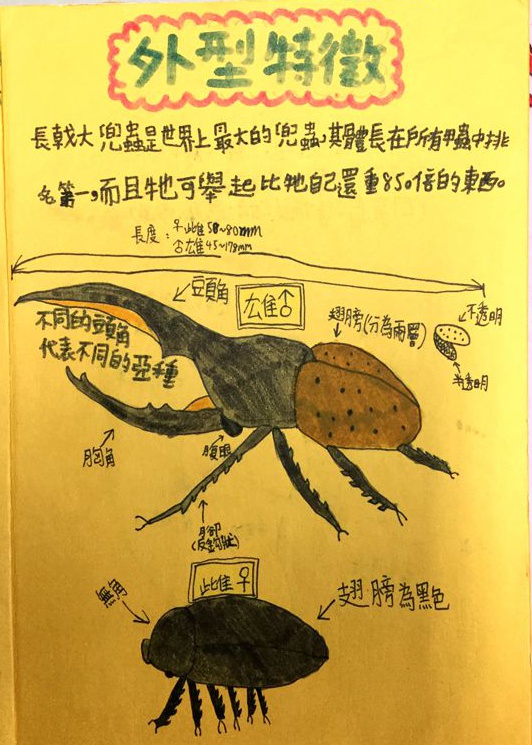 外型特徵
長戟大兜蟲是世界上最大的兜蟲,其體長在所有甲蟲中排
名第一,而且牠也可舉起比牠自己還重850倍的東西。
長度:♀雌50~80mm
♂雄45~178mm
頭角
雄♂
翅膀(分為兩層)
不透明
半透明
不同的頭角
代表不同的亞種
胸角
腹眼
腳
(反鉤狀)
雌♀
無角
翅膀為黑色